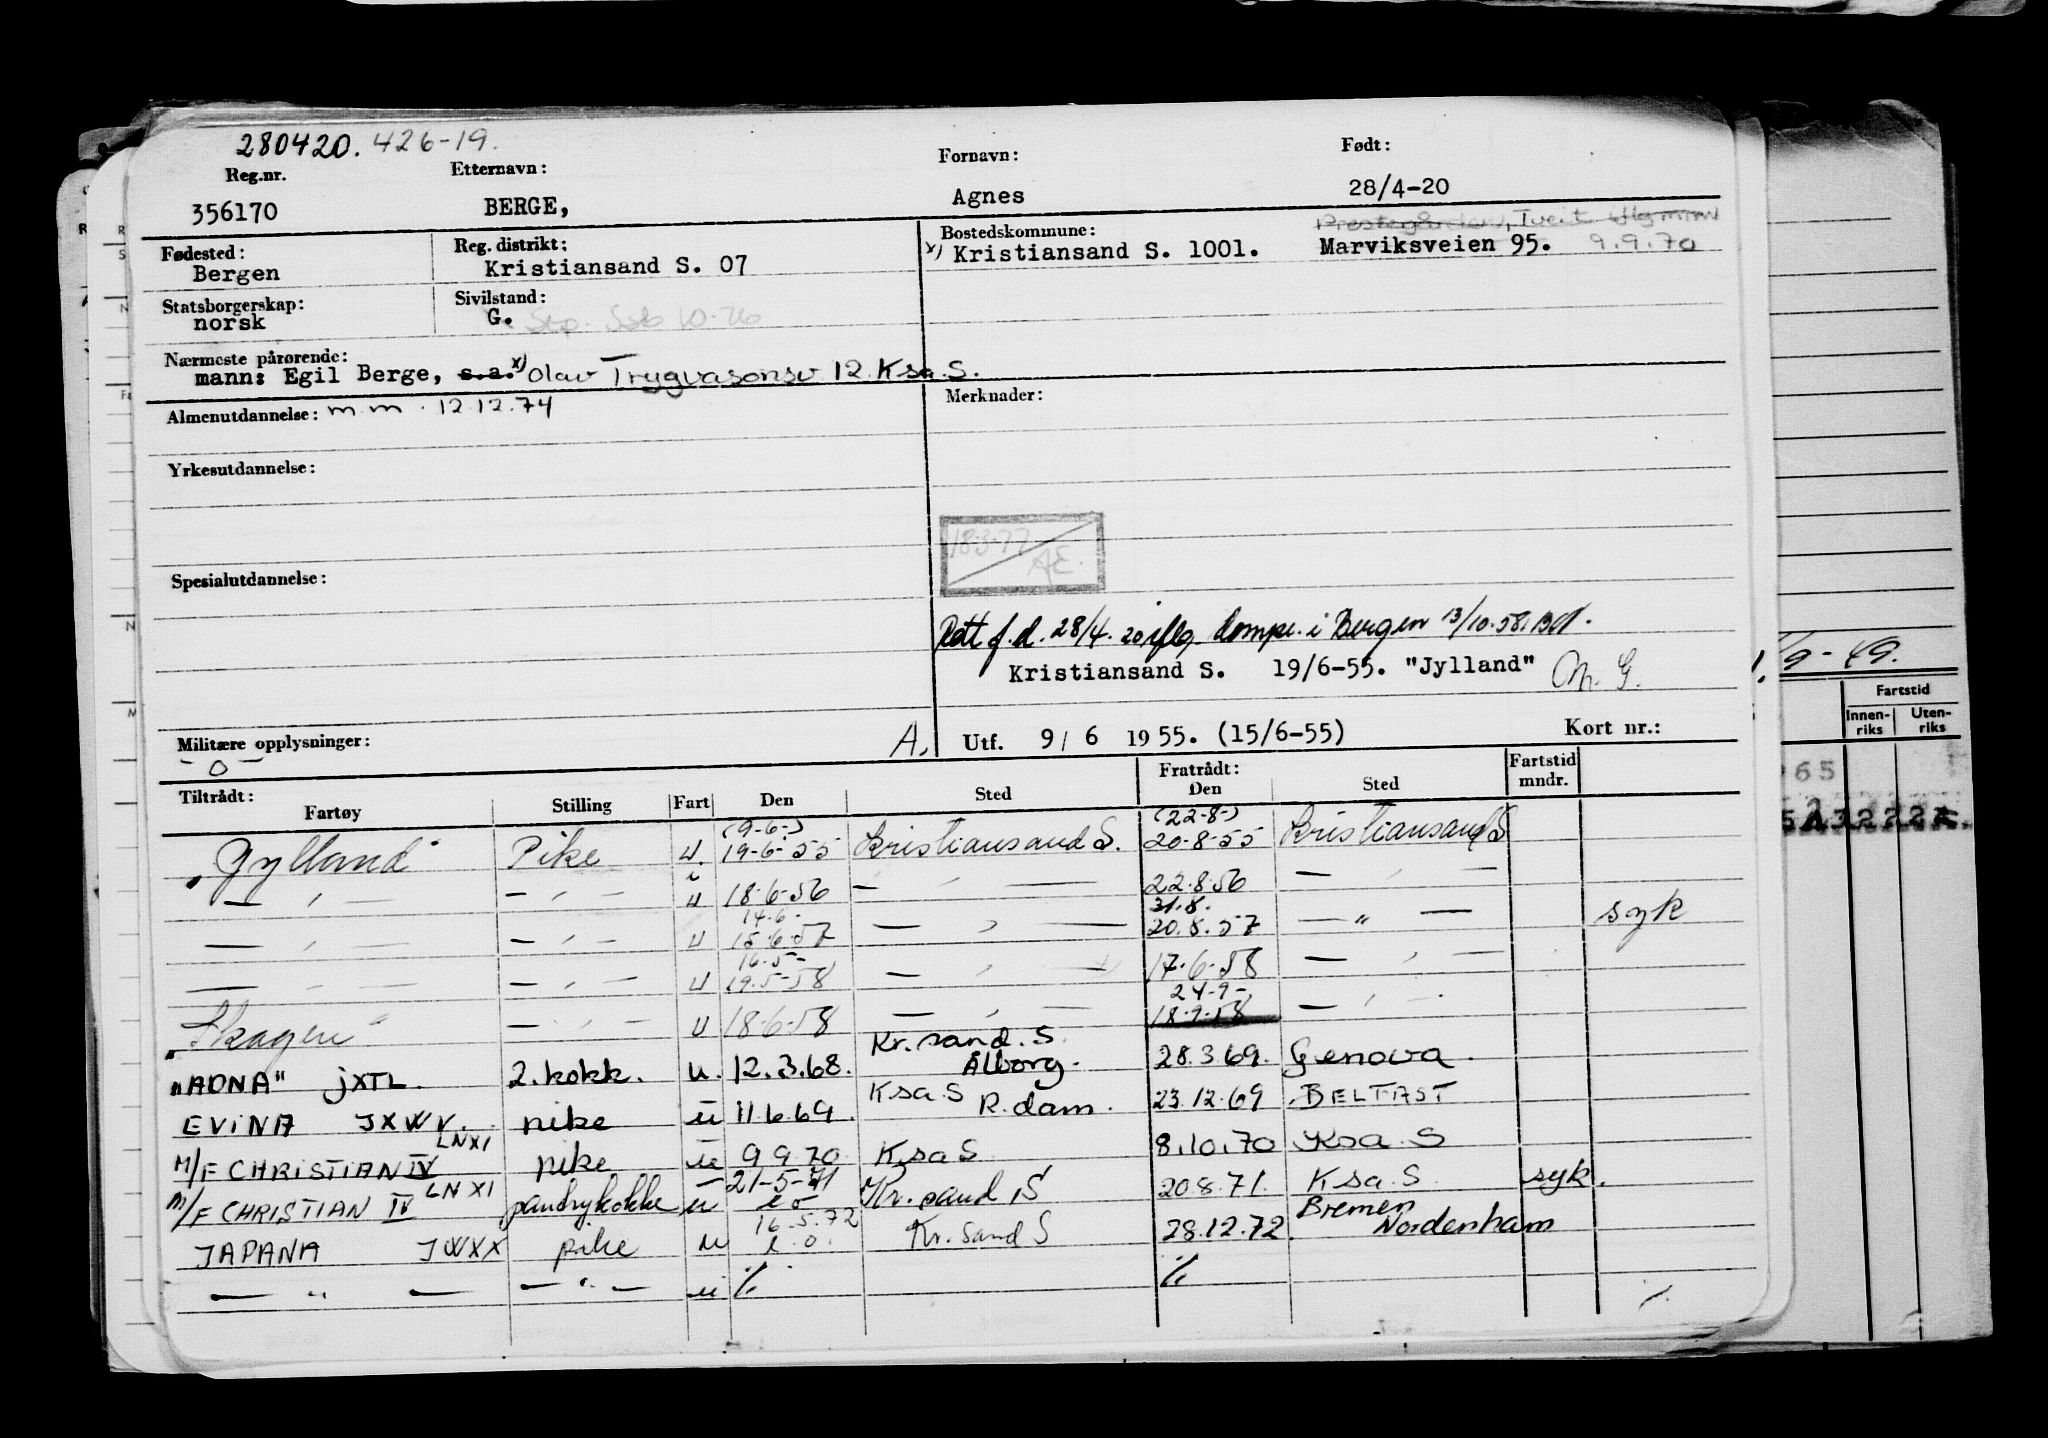 280420. 426-19.
Reg.nr. Etternavn: Fornavn: Født:
356170 BERGE, Agnes 28/4-20
Fødested: Reg. distrikt: Bostedskommune: Prestegården, Tveit
Bergen Kristiansand S. 07 x) Kristiansand S. 1001. Marviksveien 95. 9.9.70
Statsborgerskap: Sivilstand:
norsk G. Sep. 10-76
Nærmeste pårørende:
mann: Egil Berge, s.a. x) Olav Trygvasonsv 12 Ksa. S.
Almenutdannelse: m.m. 12.12.74 Merknader:
Yrkesutdannelse:
18-3-77 AE.
Spesialutdannelse:
Rett f.d. 28/4. 20 iflg. dåmpr. i Bergen 13/10.58.
Kristiansand S. 19/6-55. "Jylland" M. G.
Militære opplysninger: A. Utf. 9/6 1955. (15/6-55) Kort nr.:
- 0 -
Tiltrådt: Fratrådt: Fartstid
Fartøy Stilling Fart Den Sted Den Sted mndr.
(9-6-) (22-8-)
"Jylland" Pike u. 19-6-55 Kristiansand S. 20-8-55 Kristiansand S
— " — — " — u 18-6-56 — " — 22.8.56 — " —
14.6- 31.8.
— " — — " — u 15.6.57 — " — 20.8.57 — " — syk
16.5-
— " — — " — u 19.5-58 — " — 17.6-58 — " —
24-9-
"Skagen" — " — u 18-6-58 — " — 18.9.58 — " —
Kr.sand. S.
"ADNA" JXTL. 2.kokk. u. 12.3.68. Ålborg. 28.3.69. Genova.
EVINA JXWV. pike u 11.6.69. Ksa S R.dam. 23.12.69 BELFAST
LNXI
M/F CHRISTIAN IV pike u 9.9.70 Ksa S 8.10.70 Ksa. S
LNXI 21-5-71
M/F CHRISTIAN IV pantrykokke u Kr.sand, S 20.8.71. Ksa. S. syk.
16.5.72 Bremen
JAPANA JWXX pike u Kr.sand S 28.12.72. Nordenham
— " — — " — u % %
/9-49.
Fartstid
Innen-riks Uten-riks